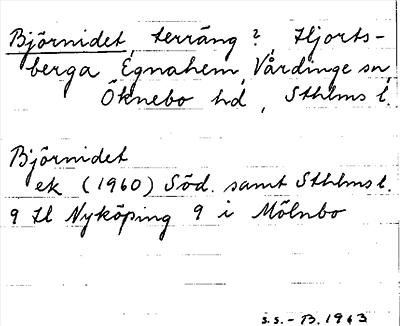 Björnidet, terräng?, Hjorts-
berga, Egnahem, Vårdinge sn,
Öknebo hd, Sthlms l.
Björnidet
ek (1960) Söd. samt Sthlms l.
9 H Nyköping 9 i Mölnbo
s.s. - B. 1963